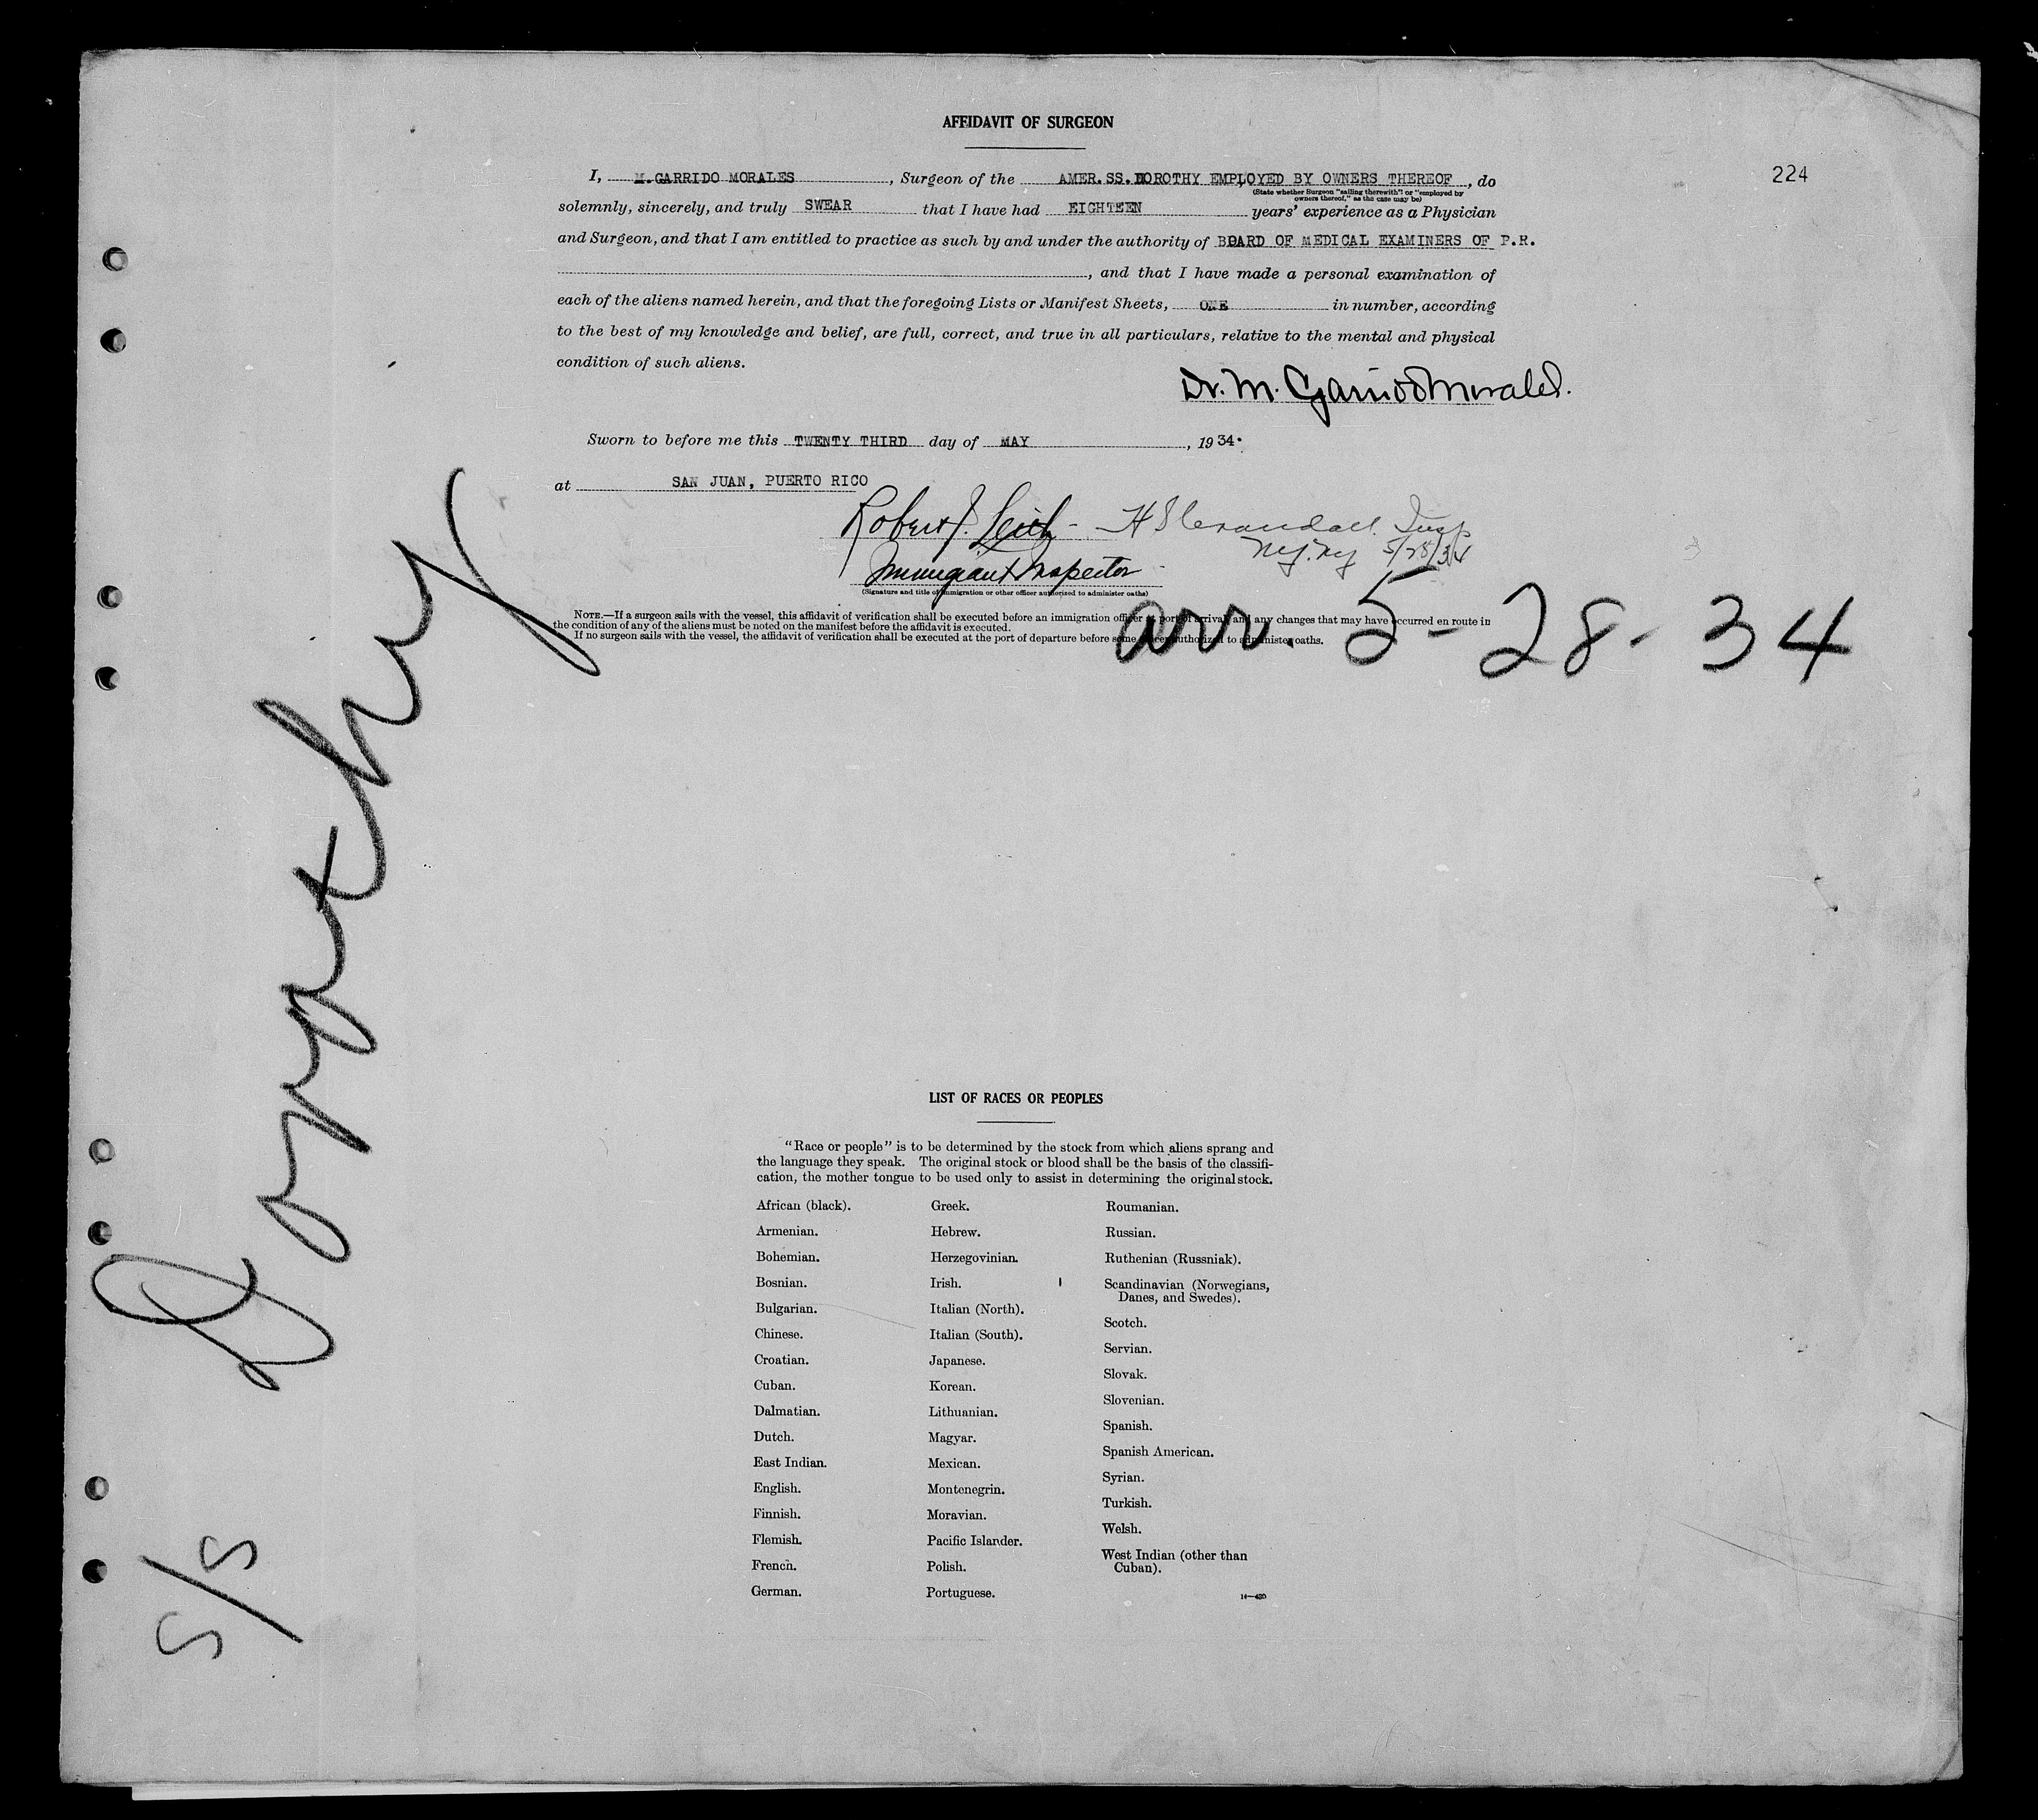 AFFIDAVIT OF SURGEON
224
I, M. GARRIDO MORALES, Surgeon of the AMER. SS. DOROTHY EMPLOYED BY OWNERS THEREOF, do
(State whether Surgeon "sailing therewith" or "employed by
owners thereof," as the case may be)
solemnly, sincerely, and truly SWEAR that I have had EIGHTEEN years' experience as a Physician
and Surgeon, and that I am entitled to practice as such by and under the authority of BOARD OF MEDICAL EXAMINERS OF P.R.
, and that I have made a personal examination of
each of the aliens named herein, and that the foregoing Lists or Manifest Sheets, ONE in number, according
to the best of my knowledge and belief, are full, correct, and true in all particulars, relative to the mental and physical
condition of such aliens.
Dr. M. Garrido Morales.
Sworn to before me this TWENTY THIRD day of MAY, 1934.
at SAN JUAN, PUERTO RICO
Robert J. Leich - H S Crandall. Insp
Immigrant Inspector
N.Y. NY 5/28/34
(Signature and title of immigration or other officer authorized to administer oaths)
NOTE.—If a surgeon sails with the vessel, this affidavit of verification shall be executed before an immigration officer at port of arrival, and any changes that may have occurred en route in
the condition of any of the aliens must be noted on the manifest before the affidavit is executed.
If no surgeon sails with the vessel, the affidavit of verification shall be executed at the port of departure before some officer authorized to administer oaths.
arr. 5-28-34
S/S Dorothy
LIST OF RACES OR PEOPLES
"Race or people" is to be determined by the stock from which aliens sprang and
the language they speak. The original stock or blood shall be the basis of the classifi-
cation, the mother tongue to be used only to assist in determining the original stock.
African (black).
Armenian.
Bohemian.
Bosnian.
Bulgarian.
Chinese.
Croatian.
Cuban.
Dalmatian.
Dutch.
East Indian.
English.
Finnish.
Flemish.
French.
German.
Greek.
Hebrew.
Herzegovinian.
Irish.
Italian (North).
Italian (South).
Japanese.
Korean.
Lithuanian.
Magyar.
Mexican.
Montenegrin.
Moravian.
Pacific Islander.
Polish.
Portuguese.
Roumanian.
Russian.
Ruthenian (Russniak).
Scandinavian (Norwegians,
Danes, and Swedes).
Scotch.
Servian.
Slovak.
Slovenian.
Spanish.
Spanish American.
Syrian.
Turkish.
Welsh.
West Indian (other than
Cuban).